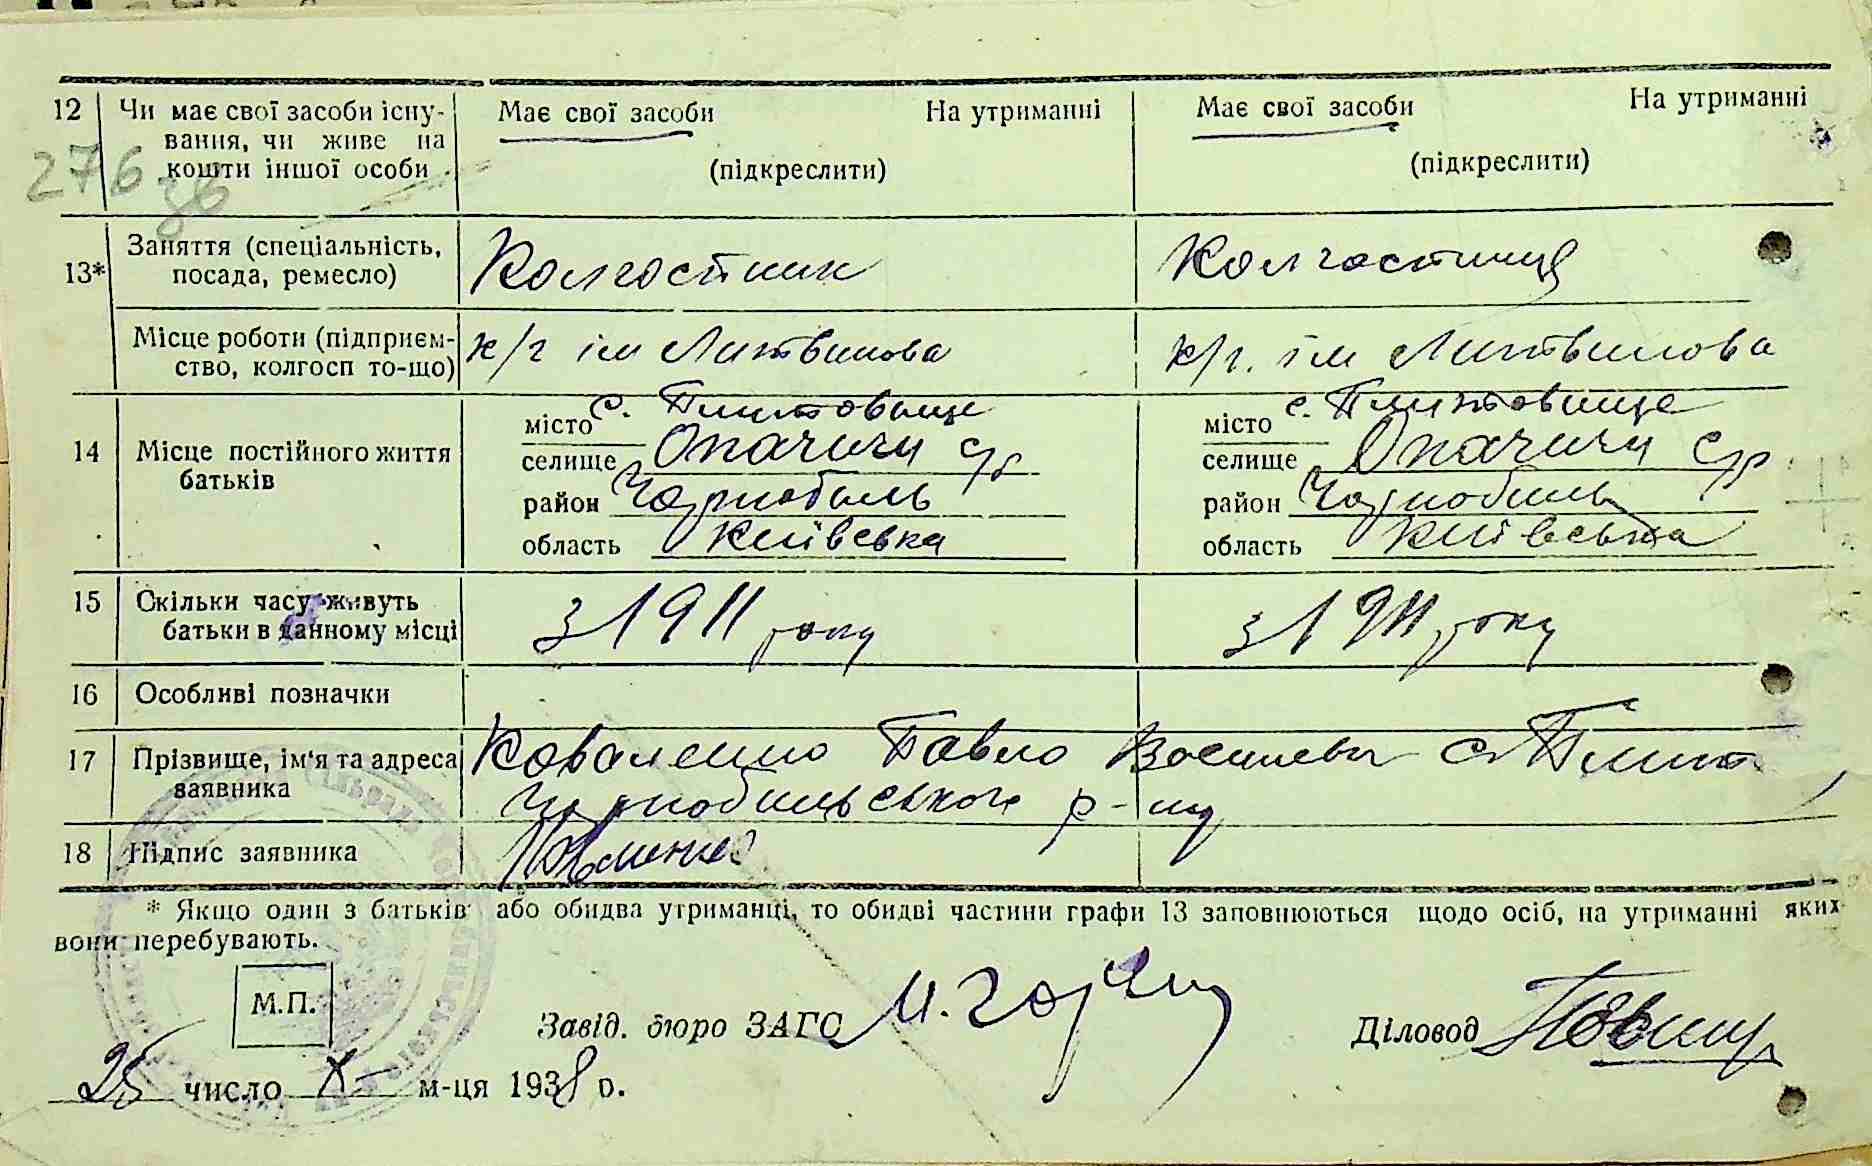 12 Чи має свої засоби існу- Має свої засоби На утриманні Має свої засоби На утриманні
вання, чи живе на
кошти іншої особи (підкреслити) (підкреслити)
276
зв
13* Заняття (спеціальність, Колгостник Колгостниця
посада, ремесло)
Місце роботи (підприєм- к/г ім Литвинова к/г. ім Литвинова
ство, колгосп то-що)
14 Місце постійного життя місто с. Плитовище місто с. Плитовище
батьків селище Опачичи с/р селище Опачичи с/р
район Чорнобиль район Чорнобиль
область Київська область Київська
15 Скільки часу живуть з 1911 року з 1911 року
батьки в данному місці
16 Особливі позначки
17 Прізвище, ім'я та адреса Коваленко Павло Василевич с. Плит
заявника Чорнобильського р-ну
18 Підпис заявника
* Якщо один з батьків або обидва утриманці, то обидві частини графи 13 заповнюються щодо осіб, на утриманні яких
вони перебувають.
М.П.
Завід. бюро ЗАГС Діловод
25 число X м-ця 1938 р.